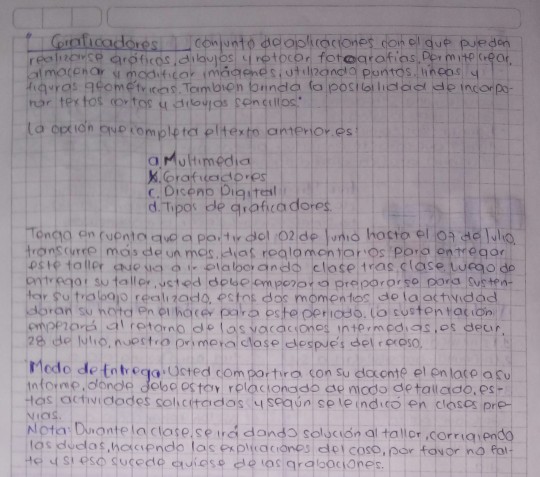 " Graficadores conjunto de aplicaciones con el que pueden
realizarse gráficos, dibujos y retocar fotografías. Permite crear,
almacenar y modificar imágenes, utilizando puntos, líneas y
figuras geométricas. También brinda la posibilidad de incorpo-
rar textos cortos y dibujos sencillos"
La opción que completa el texto anterior es:
a. Multimedia
b. Graficadores
c. Diseño Digital
d. Tipos de graficadores
Tenga en cuenta que a partir del 02 de Junio hasta el 07 de Julio
transcurre más de un mes, días reglamentarios para entregar
este taller que va a ir elaborando clase tras clase, luego de
entregar su taller, usted debe empezar a prepararse para susten-
tar su trabajo realizado, estos dos momentos de la actividad
darán su nota en el hacer para este periodo. La sustentación
empezará al retorno de las vacaciones intermedias, es decir,
28 de Julio, nuestra primera clase después del receso.
Modo de Entrega: Usted compartirá con su docente el enlace a su
informe, donde debe estar relacionado de modo detallado, es-
tas actividades solicitadas y según se le indicó en clases pre-
vias.
Nota: Durante la clase, se irá dando solución al taller, corrigiendo
las dudas, haciendo las explicaciones del caso, por favor no fal-
te y si eso sucede guíese de las grabaciones.